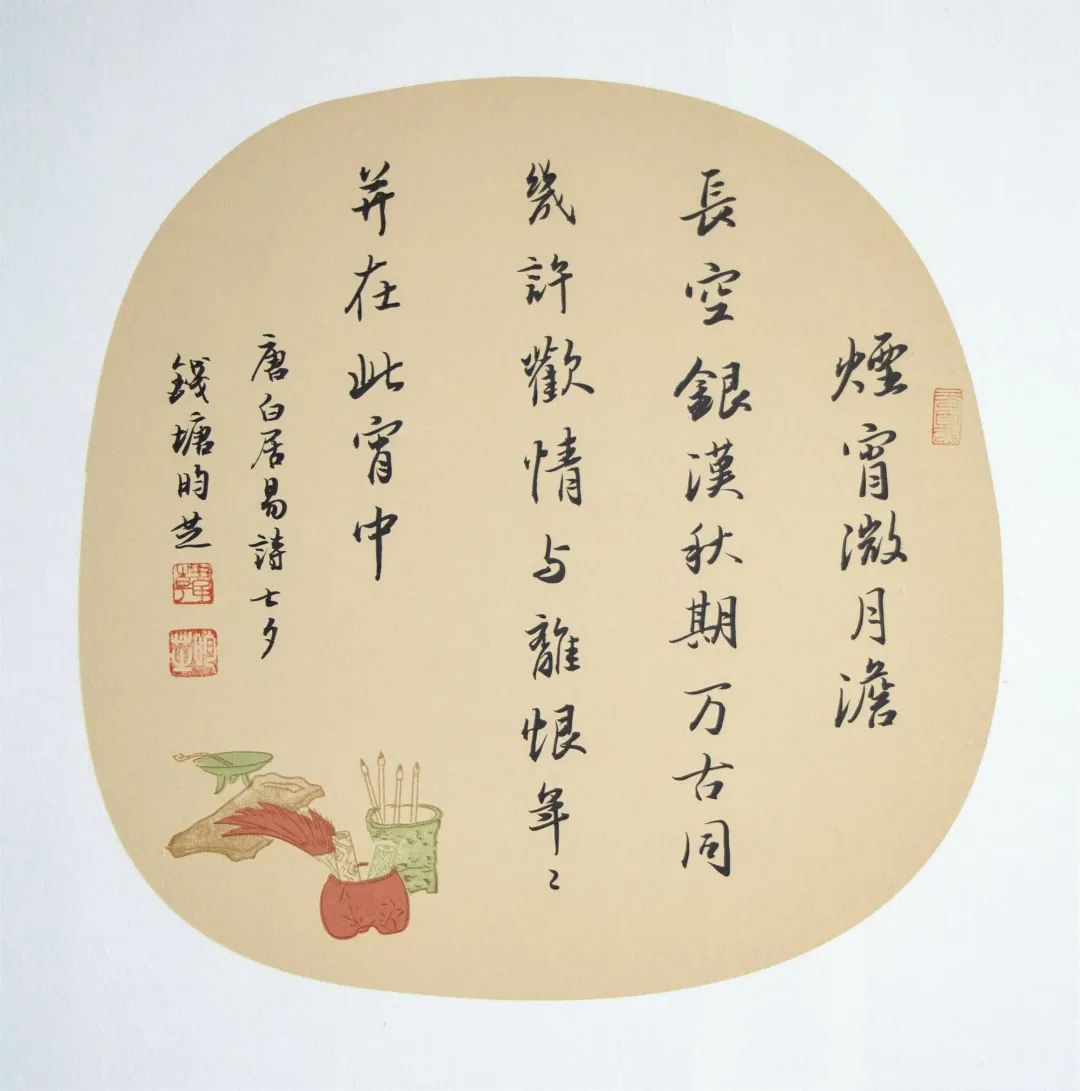 煙宵微月澹
長空銀漢秋期万古同
幾許歡情与離恨年〻
并在此宵中
唐白居易詩七夕
錢塘昀芝